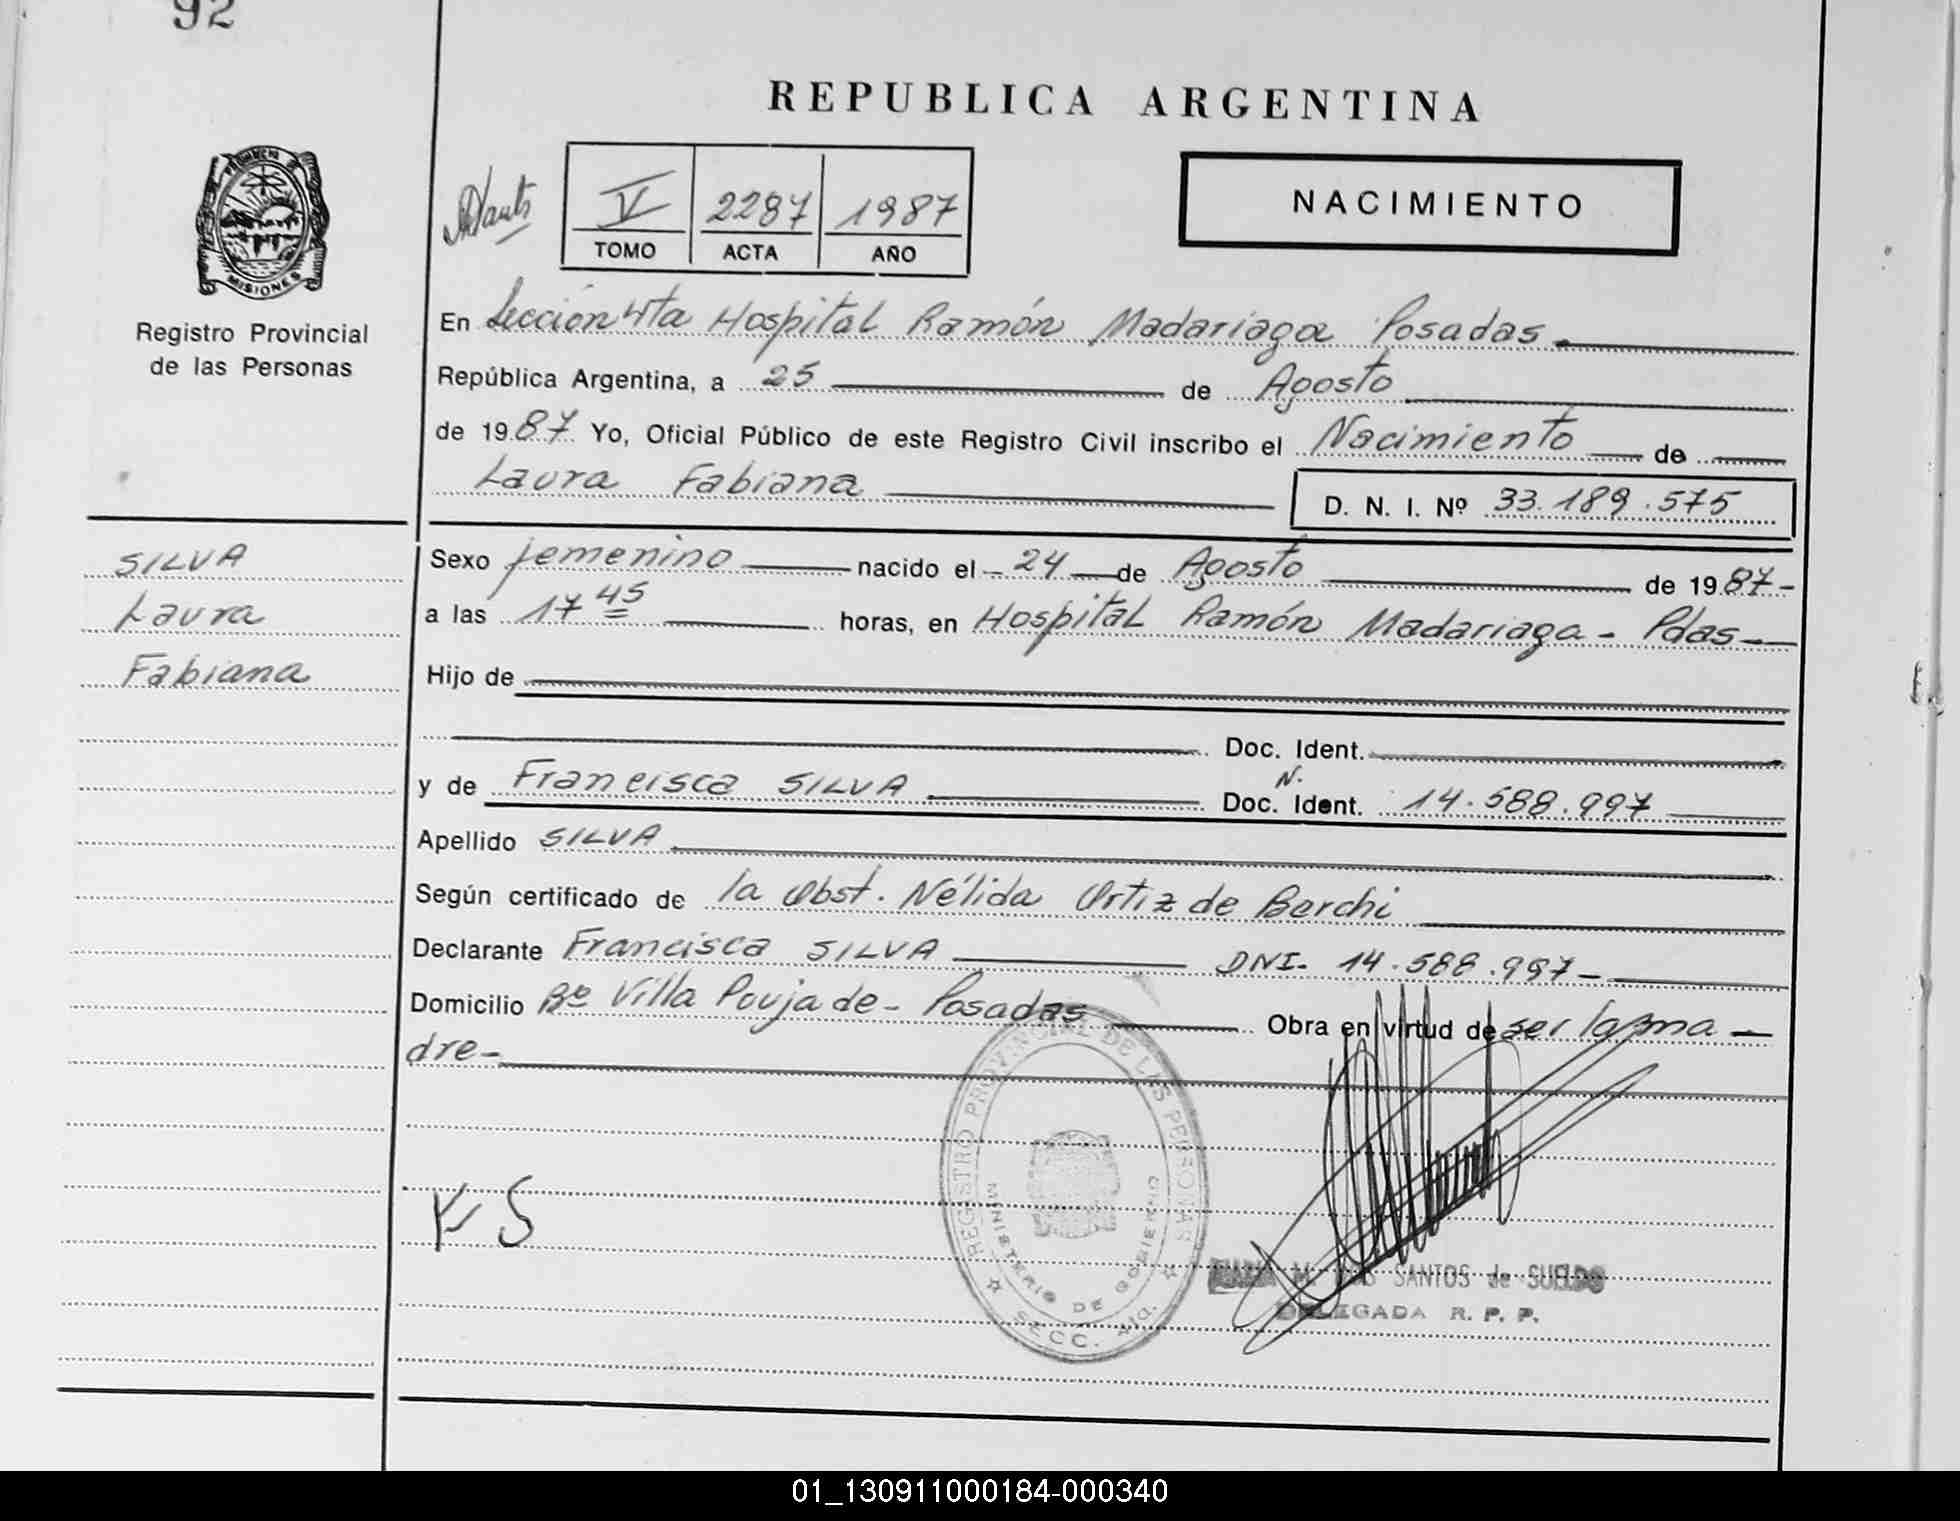 92
REPUBLICA ARGENTINA
PROVINCIA DE
MISIONES
Registro Provincial
de las Personas
V 2287 1987
TOMO ACTA AÑO
NACIMIENTO
En Sección 4ta Hospital Ramón Madariaga Posadas
República Argentina, a 25 de Agosto
de 1987 Yo, Oficial Público de este Registro Civil inscribo el Nacimiento de
Laura Fabiana D. N. I. Nº 33.189.575
SILVA
Laura
Fabiana
Sexo femenino nacido el 24 de Agosto de 1987-
a las 17 45 horas, en Hospital Ramón Madariaga - Pdas
Hijo de
Doc. Ident.
y de Francisca SILVA N. Doc. Ident. 14.588.997
Apellido SILVA
Según certificado de la Obst. Nélida Ortiz de Berchi
Declarante Francisca SILVA DNI- 14.588.997-
Domicilio Bº Villa Poujade- Posadas Obra en virtud de ser la ma-
dre-
REGISTRO PROVINCIAL DE LAS PERSONAS
MINISTERIO DE GOBIERNO
SECC. 4ta.
M. SANTOS de SUELDO
DELEGADA R. P. P.
01_130911000184-000340